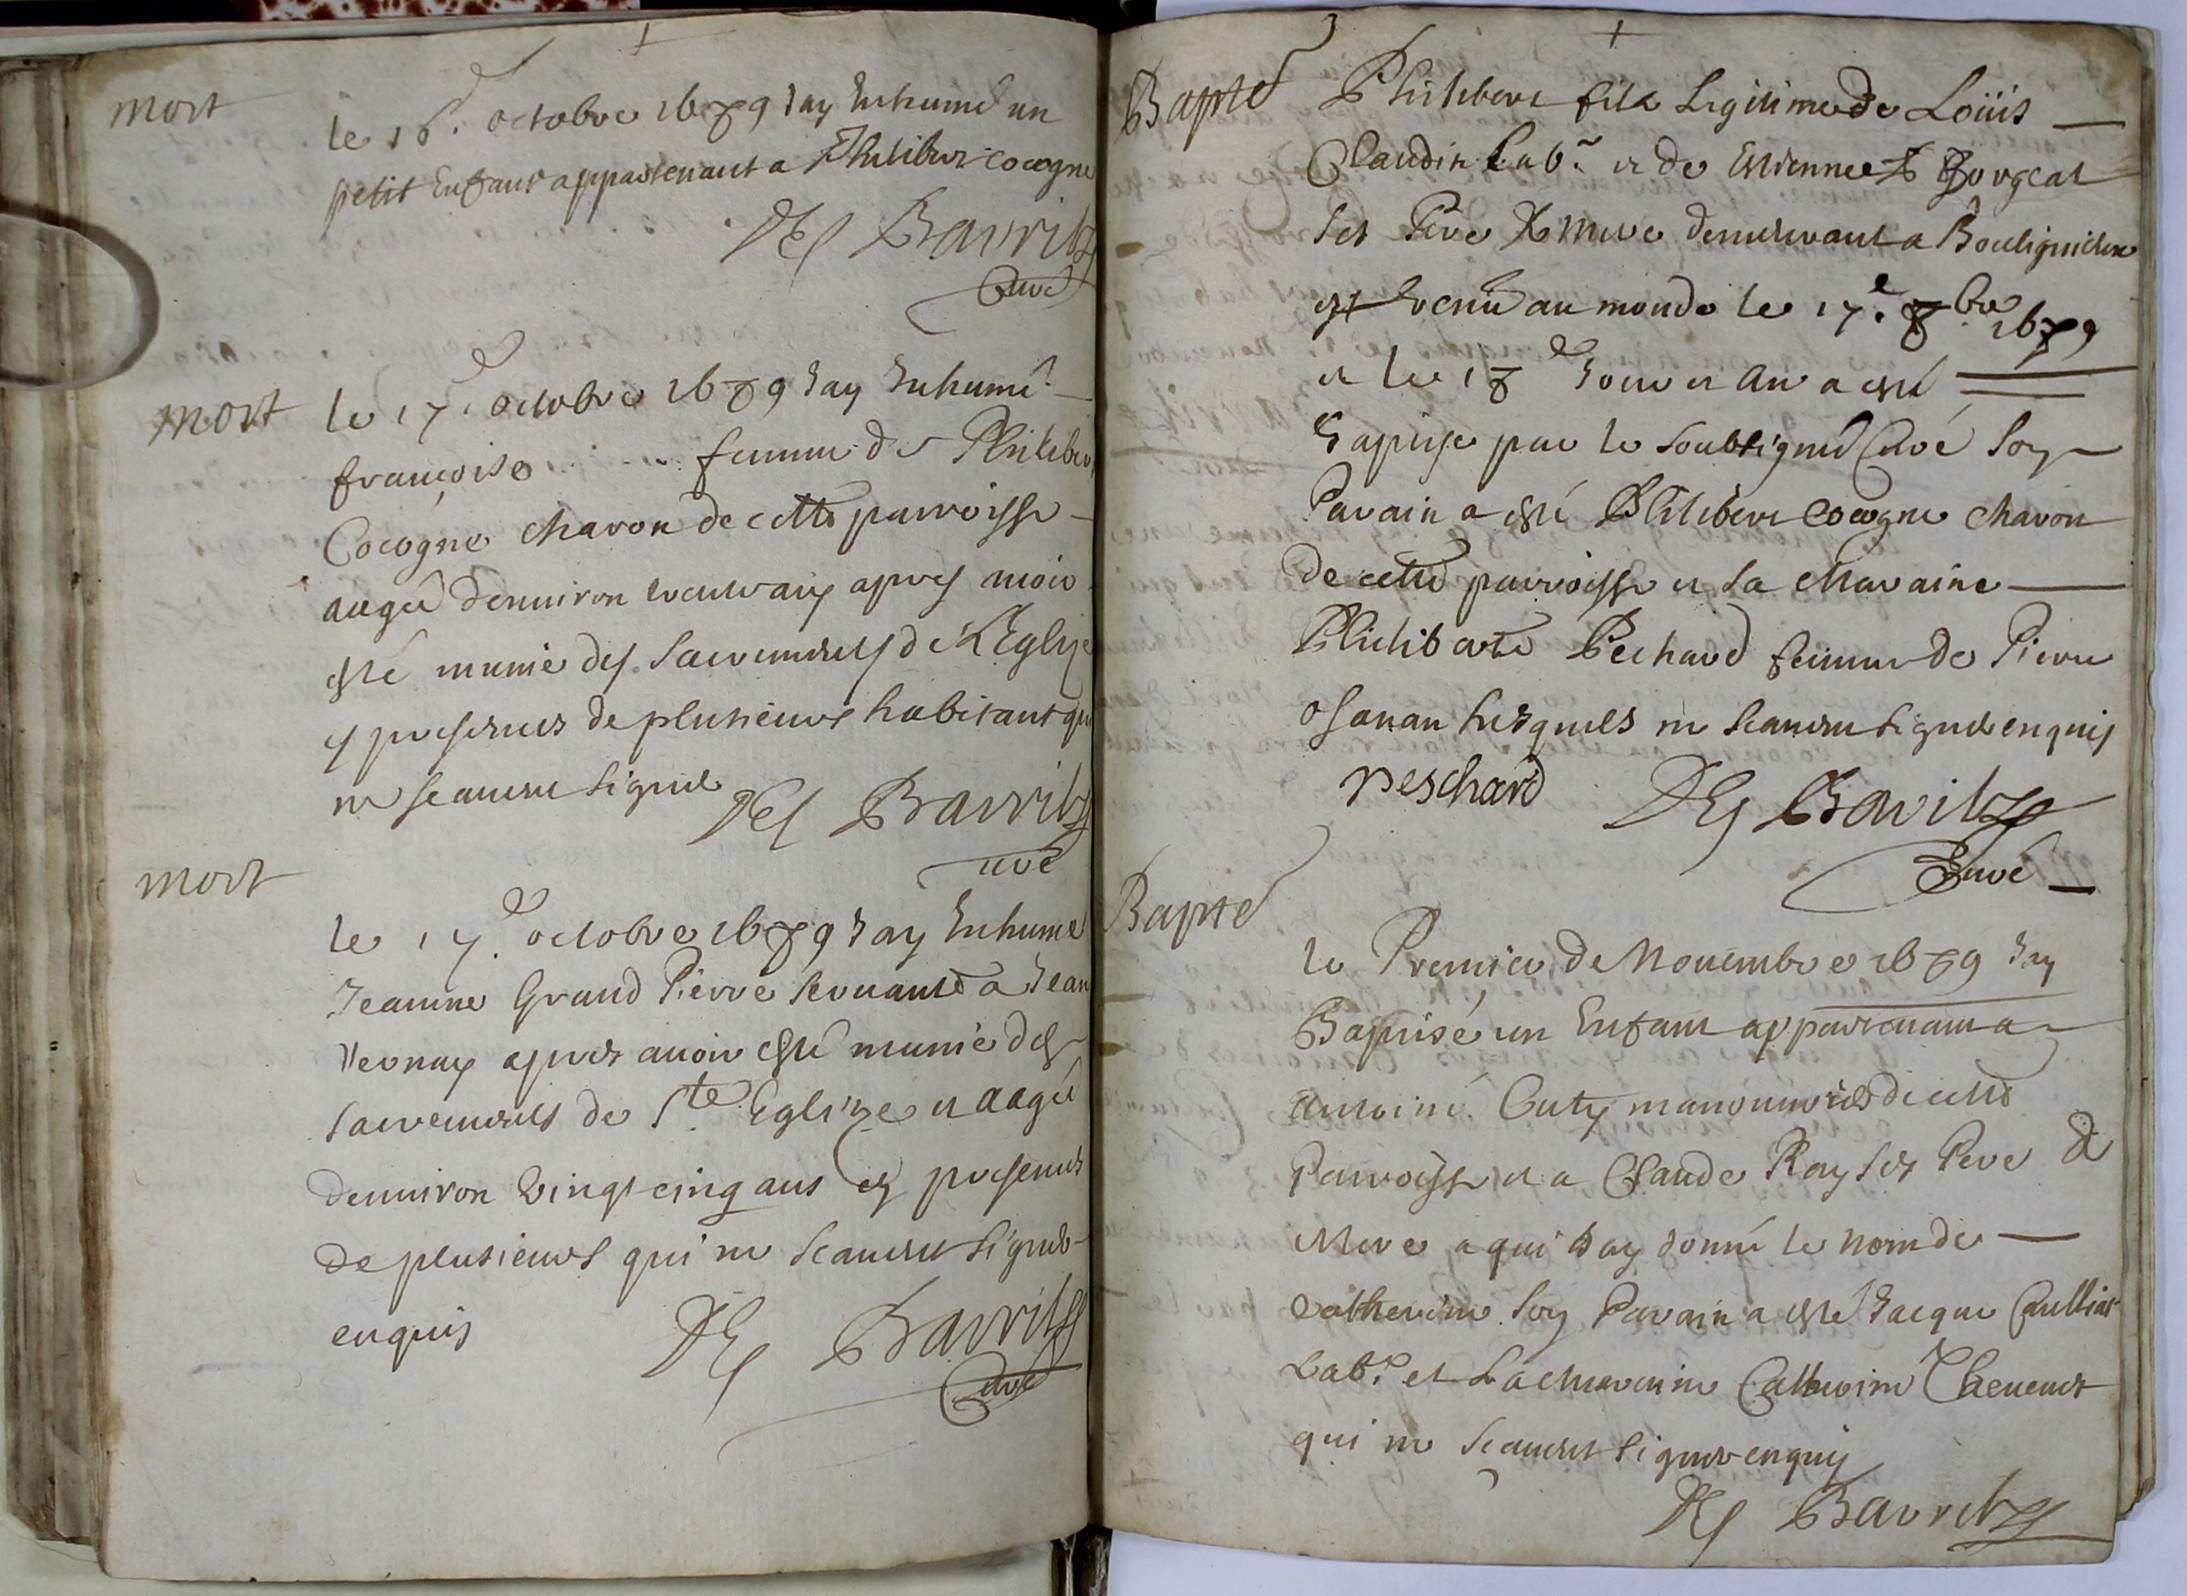 mort
le 16e octobre 1679 Jay Inhumé un
petit Enfant appartenant a Philibert cocogne
Des Barritz
Curé
mort
le 17e octobre 1679 Jay Inhumé
françoise femme de Philibert
Cocogne charon de cette parroisse
aagée denuiron trente ans apres auoir
esté munie des Sacrements de L'Eglise
es presences de plusieurs habitants qui
ne scauent signer
Des Barritz
curé
mort
le 17e octobre 1679 Jay Inhumé
Jeanne Grand Pierre seruante a Jean
Vernay apres auoir esté munie des
sacrements de Ste Eglize et aagée
denuiron vingt cinq ans es presences
de plusieurs qui ne scauent signer
enquis
Des Barritz
Curé
Bapte
Philibert fils Legitime de Loüis
Claudin Labr et de Estiennette Bourgeat
ses Pere & Mere demeurant a
est venu au monde le 17e 8bre 1679
et le 18e Jour et an a esté
Baptise par le soubsigné Curé son
Parain a esté Philibert Cocogne charon
de cette parroisse et sa Maraine
Philiberte Pechard femme de Pierre
lesquels ne scauent signer enquis
peschard
Des Barritz
Curé
Bapte
le Premier de Nouembre 1679 Jay
Baptisé un Enfant appartenant a
Antoine Cuty manouurier de cette
Parroisse et a Claude Ray ses Pere &
Mere a qui Jay donné le nom de
Catherine son Parain a esté Jacque
Labr et La Maraine Catherine Theuenet
qui ne scauent signer enquis
Des Barritz